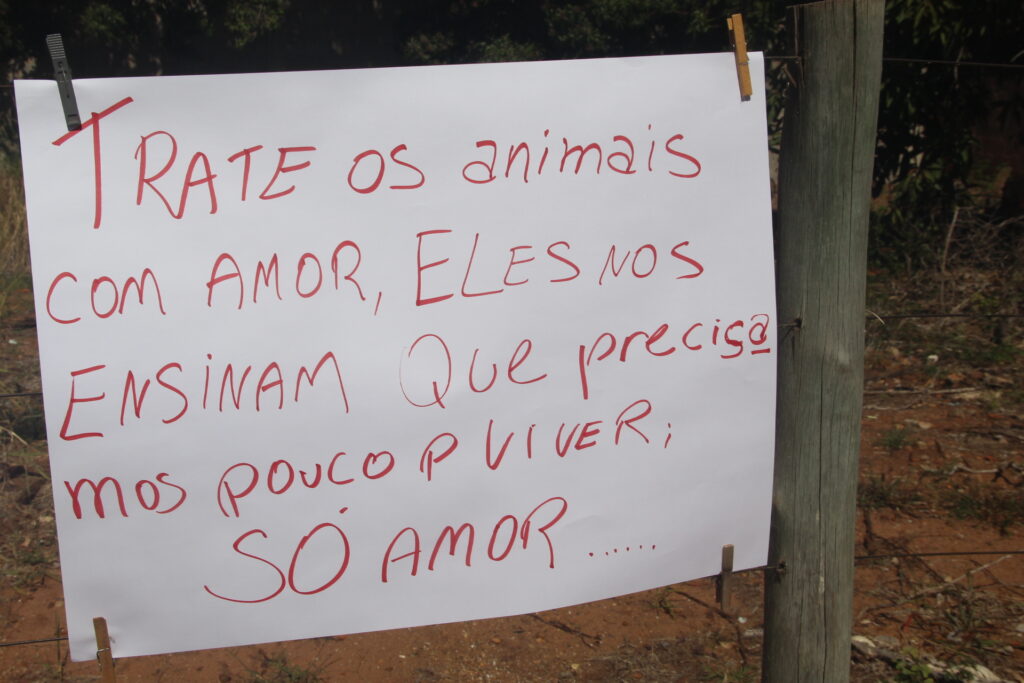 TRATE OS animais
COM AMOR, ELES NOS
ENSINAM QUE precisa
mos POUCO P VIVER;
SÓ AMOR ......